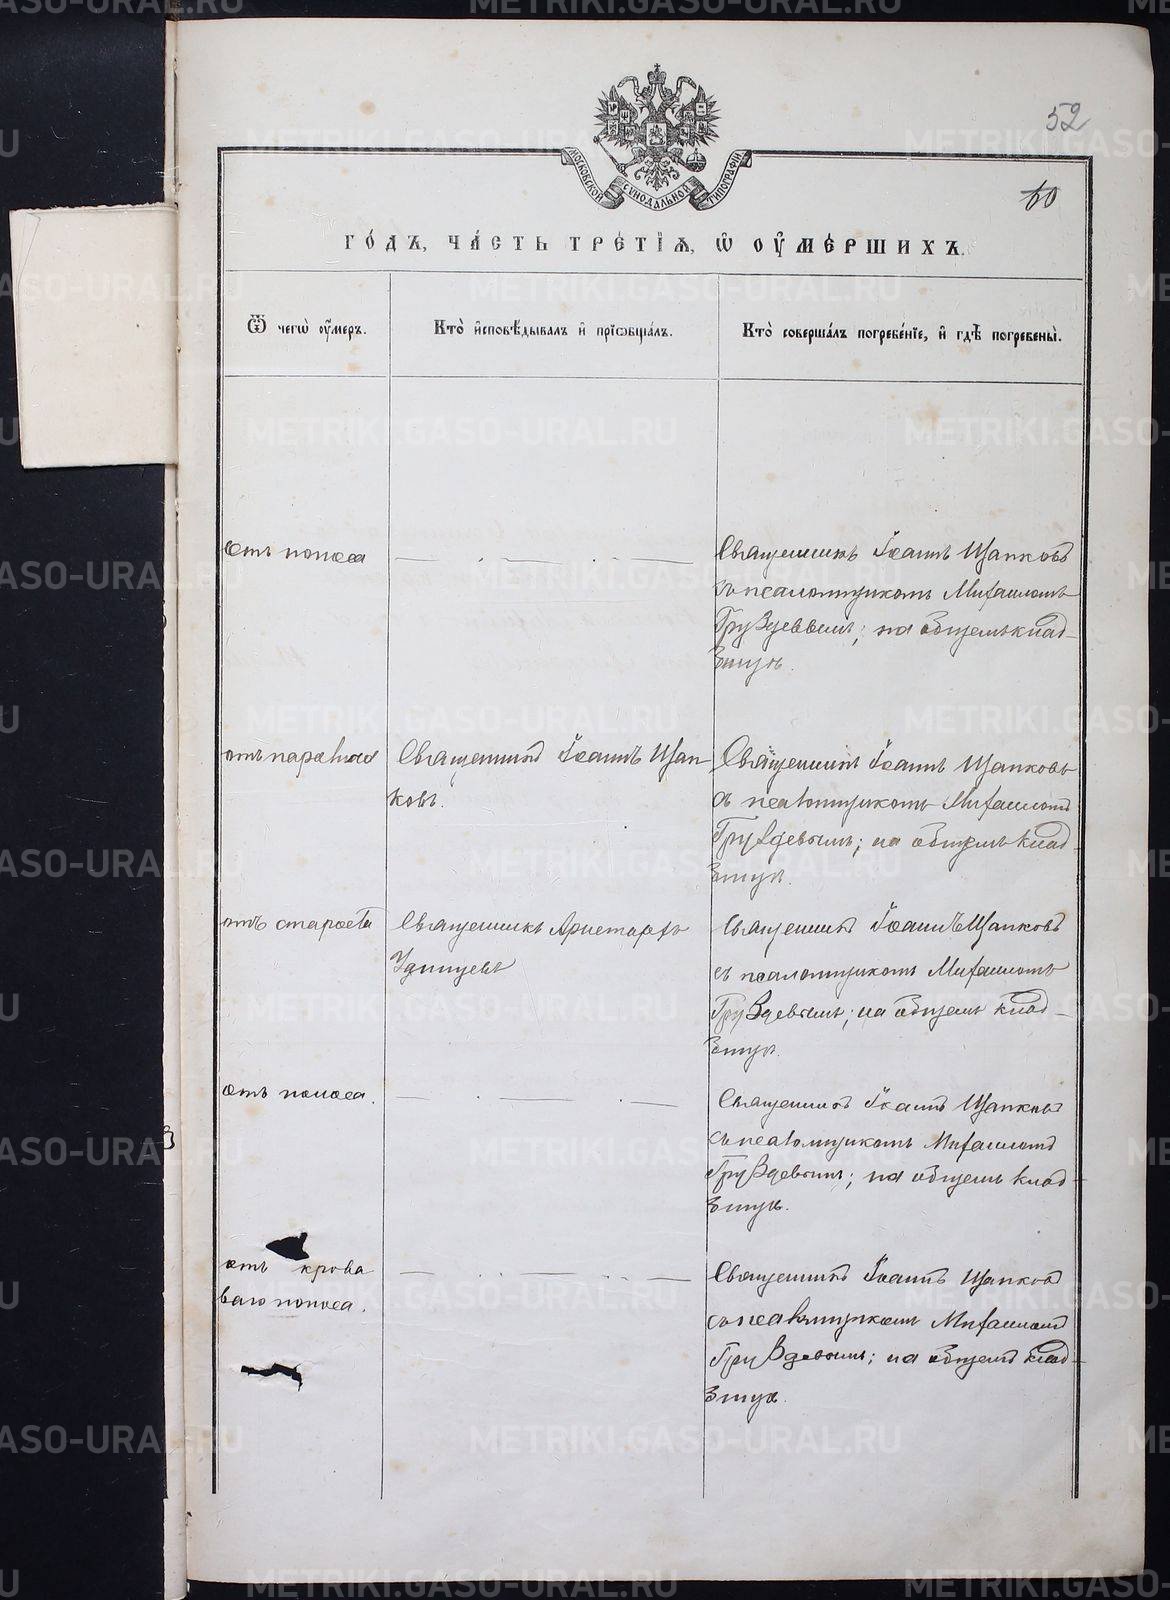 52
60
МОСКОВСКОЙ СѴНОДАЛЬНОЙ ТИПОГРАФІИ
ГО́ДЪ, ЧА́СТЬ ТРЕ́ТІѦ, Ѡ҆ ОУ҆МЕ́РШИХЪ.
Ѿ чегѡ̀ оу҆́меръ.
Кто̀ и҆сповѣ́дывалъ и҆ прїѡбща́лъ.
Кто̀ соверша́лъ погребе́нїе, и҆ гдѣ̀ погребены̀.
Отъ поноса
Священникъ Іоаннъ Щапковъ
съ псаломщикомъ Михаиломъ
Груздевымъ; на общемъ клад-
бищѣ.
отъ
Священникъ Іоаннъ Щап-
ковъ.
Священникъ Іоаннъ Щапковъ
съ псаломщикомъ Михаиломъ
Груздевымъ; на общемъ клад-
бищѣ.
отъ старости
Священникъ Аристархъ
Удинцевъ
Священникъ Іоаннъ Щапковъ
съ псаломщикомъ Михаиломъ
Груздевымъ; на общемъ клад-
бищѣ.
отъ поноса.
Священникъ Іоаннъ Щапковъ
съ псаломщикомъ Михаиломъ
Груздевымъ; на общемъ клад-
бищѣ.
отъ крова
ваго поноса.
Священникъ Іоаннъ Щапковъ
съ псаломщикомъ Михаиломъ
Груздевымъ; на общемъ клад-
бищѣ.
METRIKI.GASO-URAL.RU